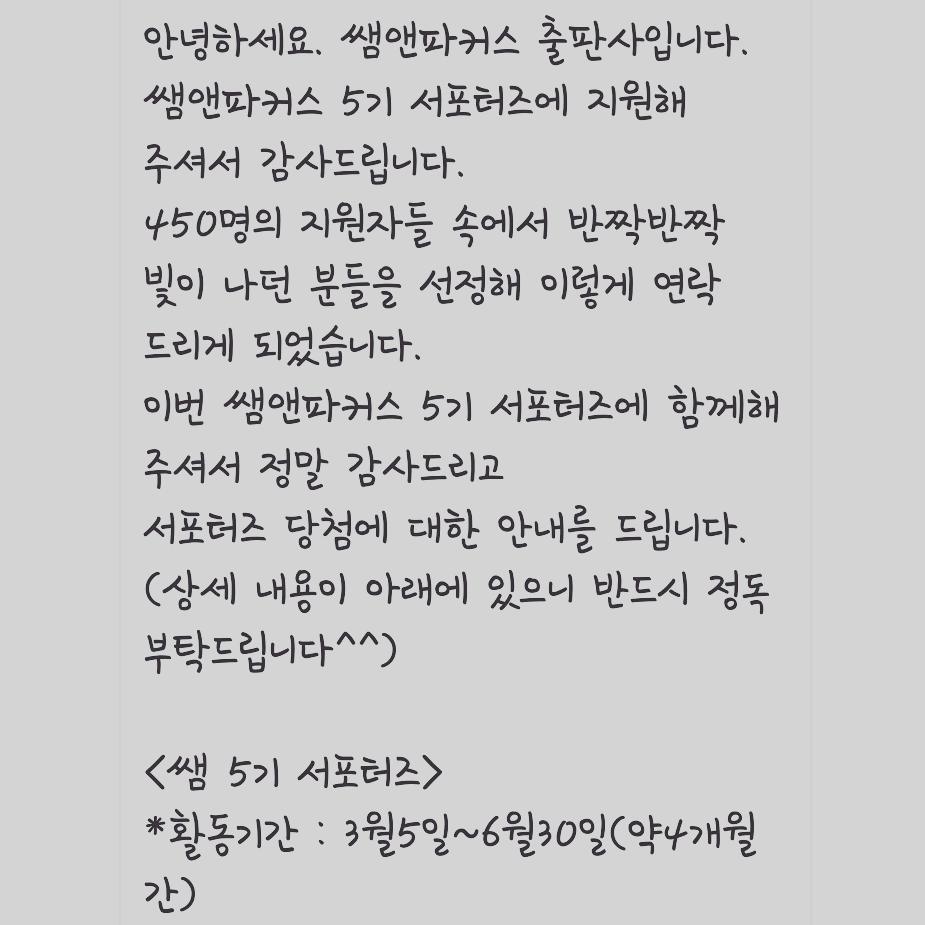 안녕하세요. 쌤앤파커스 출판사입니다.
쌤앤파커스 5기 서포터즈에 지원해
주셔서 감사드립니다.
450명의 지원자들 속에서 반짝반짝
빛이 나던 분들을 선정해 이렇게 연락
드리게 되었습니다.
이번 쌤앤파커스 5기 서포터즈에 함께해
주셔서 정말 감사드리고
서포터즈 당첨에 대한 안내를 드립니다.
(상세 내용이 아래에 있으니 반드시 정독
부탁드립니다^^)
<쌤 5기 서포터즈>
*활동기간 : 3월5일~6월30일(약4개월
간)